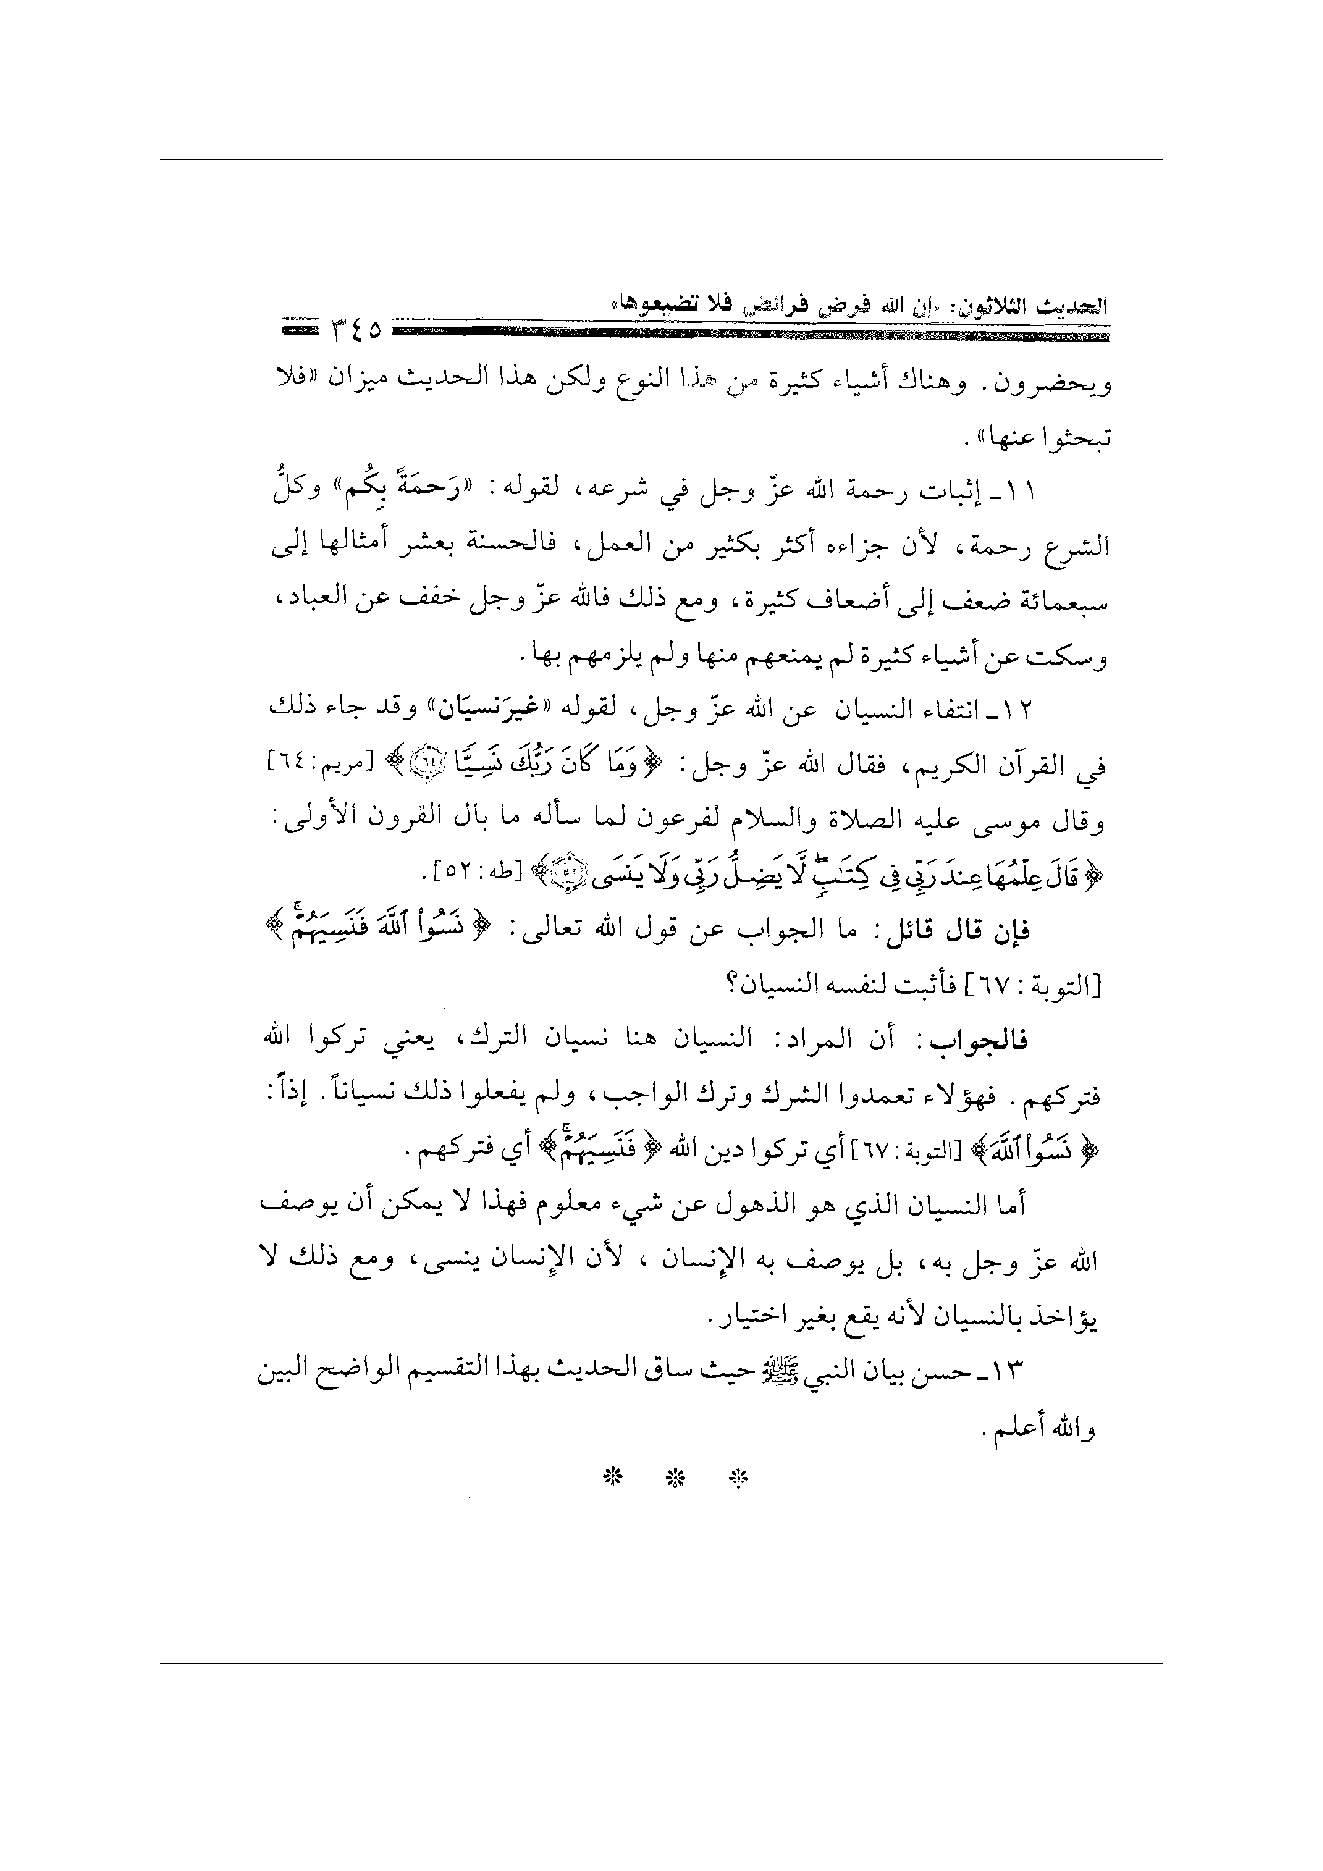 الحديث الثلاثون: «إن الله فرض فرائض فلا تضيعوها»
٣٤٥
ويحضرون. وهناك أشياء كثيرة من هذا النوع ولكن هذا الحديث ميزان «فلا
تبحثوا عنها».
١١ـ إثبات رحمة الله عزّ وجل في شرعه، لقوله: «رَحمَةً بِكُم» وكلُّ
الشرع رحمة، لأن جزاءه أكثر بكثير من العمل، فالحسنة بعشر أمثالها إلى
سبعمائة ضعف إلى أضعاف كثيرة، ومع ذلك فالله عزّ وجل خفف عن العباد،
وسكت عن أشياء كثيرة لم يمنعهم منها ولم يلزمهم بها.
١٢ـ انتفاء النسيان عن الله عزّ وجل، لقوله «غيرَ نسيَان» وقد جاء ذلك
في القرآن الكريم، فقال الله عزّ وجل: ﴿وَمَا كَانَ رَبُّكَ نَسِيًّا ٦٤﴾ [مريم:٦٤]
وقال موسى عليه الصلاة والسلام لفرعون لما سأله ما بال القرون الأولى:
﴿قَالَ عِلْمُهَا عِندَ رَبِّي فِي كِتَٰبٍ ۖ لَّا يَضِلُّ رَبِّي وَلَا يَنسَى ٥٢﴾ [طه:٥٢].
فإن قال قائل: ما الجواب عن قول الله تعالى: ﴿نَسُوا۟ ٱللَّهَ فَنَسِيَهُمْ ۚ﴾
[التوبة: ٦٧] فأثبت لنفسه النسيان؟
فالجواب: أن المراد: النسيان هنا نسيان الترك، يعني تركوا الله
فتركهم. فهؤلاء تعمدوا الشرك وترك الواجب، ولم يفعلوا ذلك نسياناً. إذاً:
﴿نَسُوا۟ ٱللَّهَ﴾ [التوبة:٦٧] أي تركوا دين الله ﴿فَنَسِيَهُمْ ۚ﴾ أي فتركهم.
أما النسيان الذي هو الذهول عن شيء معلوم فهذا لا يمكن أن يوصف
الله عزّ وجل به، بل يوصف به الإنسان ، لأن الإنسان ينسى، ومع ذلك لا
يؤاخذ بالنسيان لأنه يقع بغير اختيار.
١٣ـ حسن بيان النبي ﷺ حيث ساق الحديث بهذا التقسيم الواضح البين
والله أعلم.